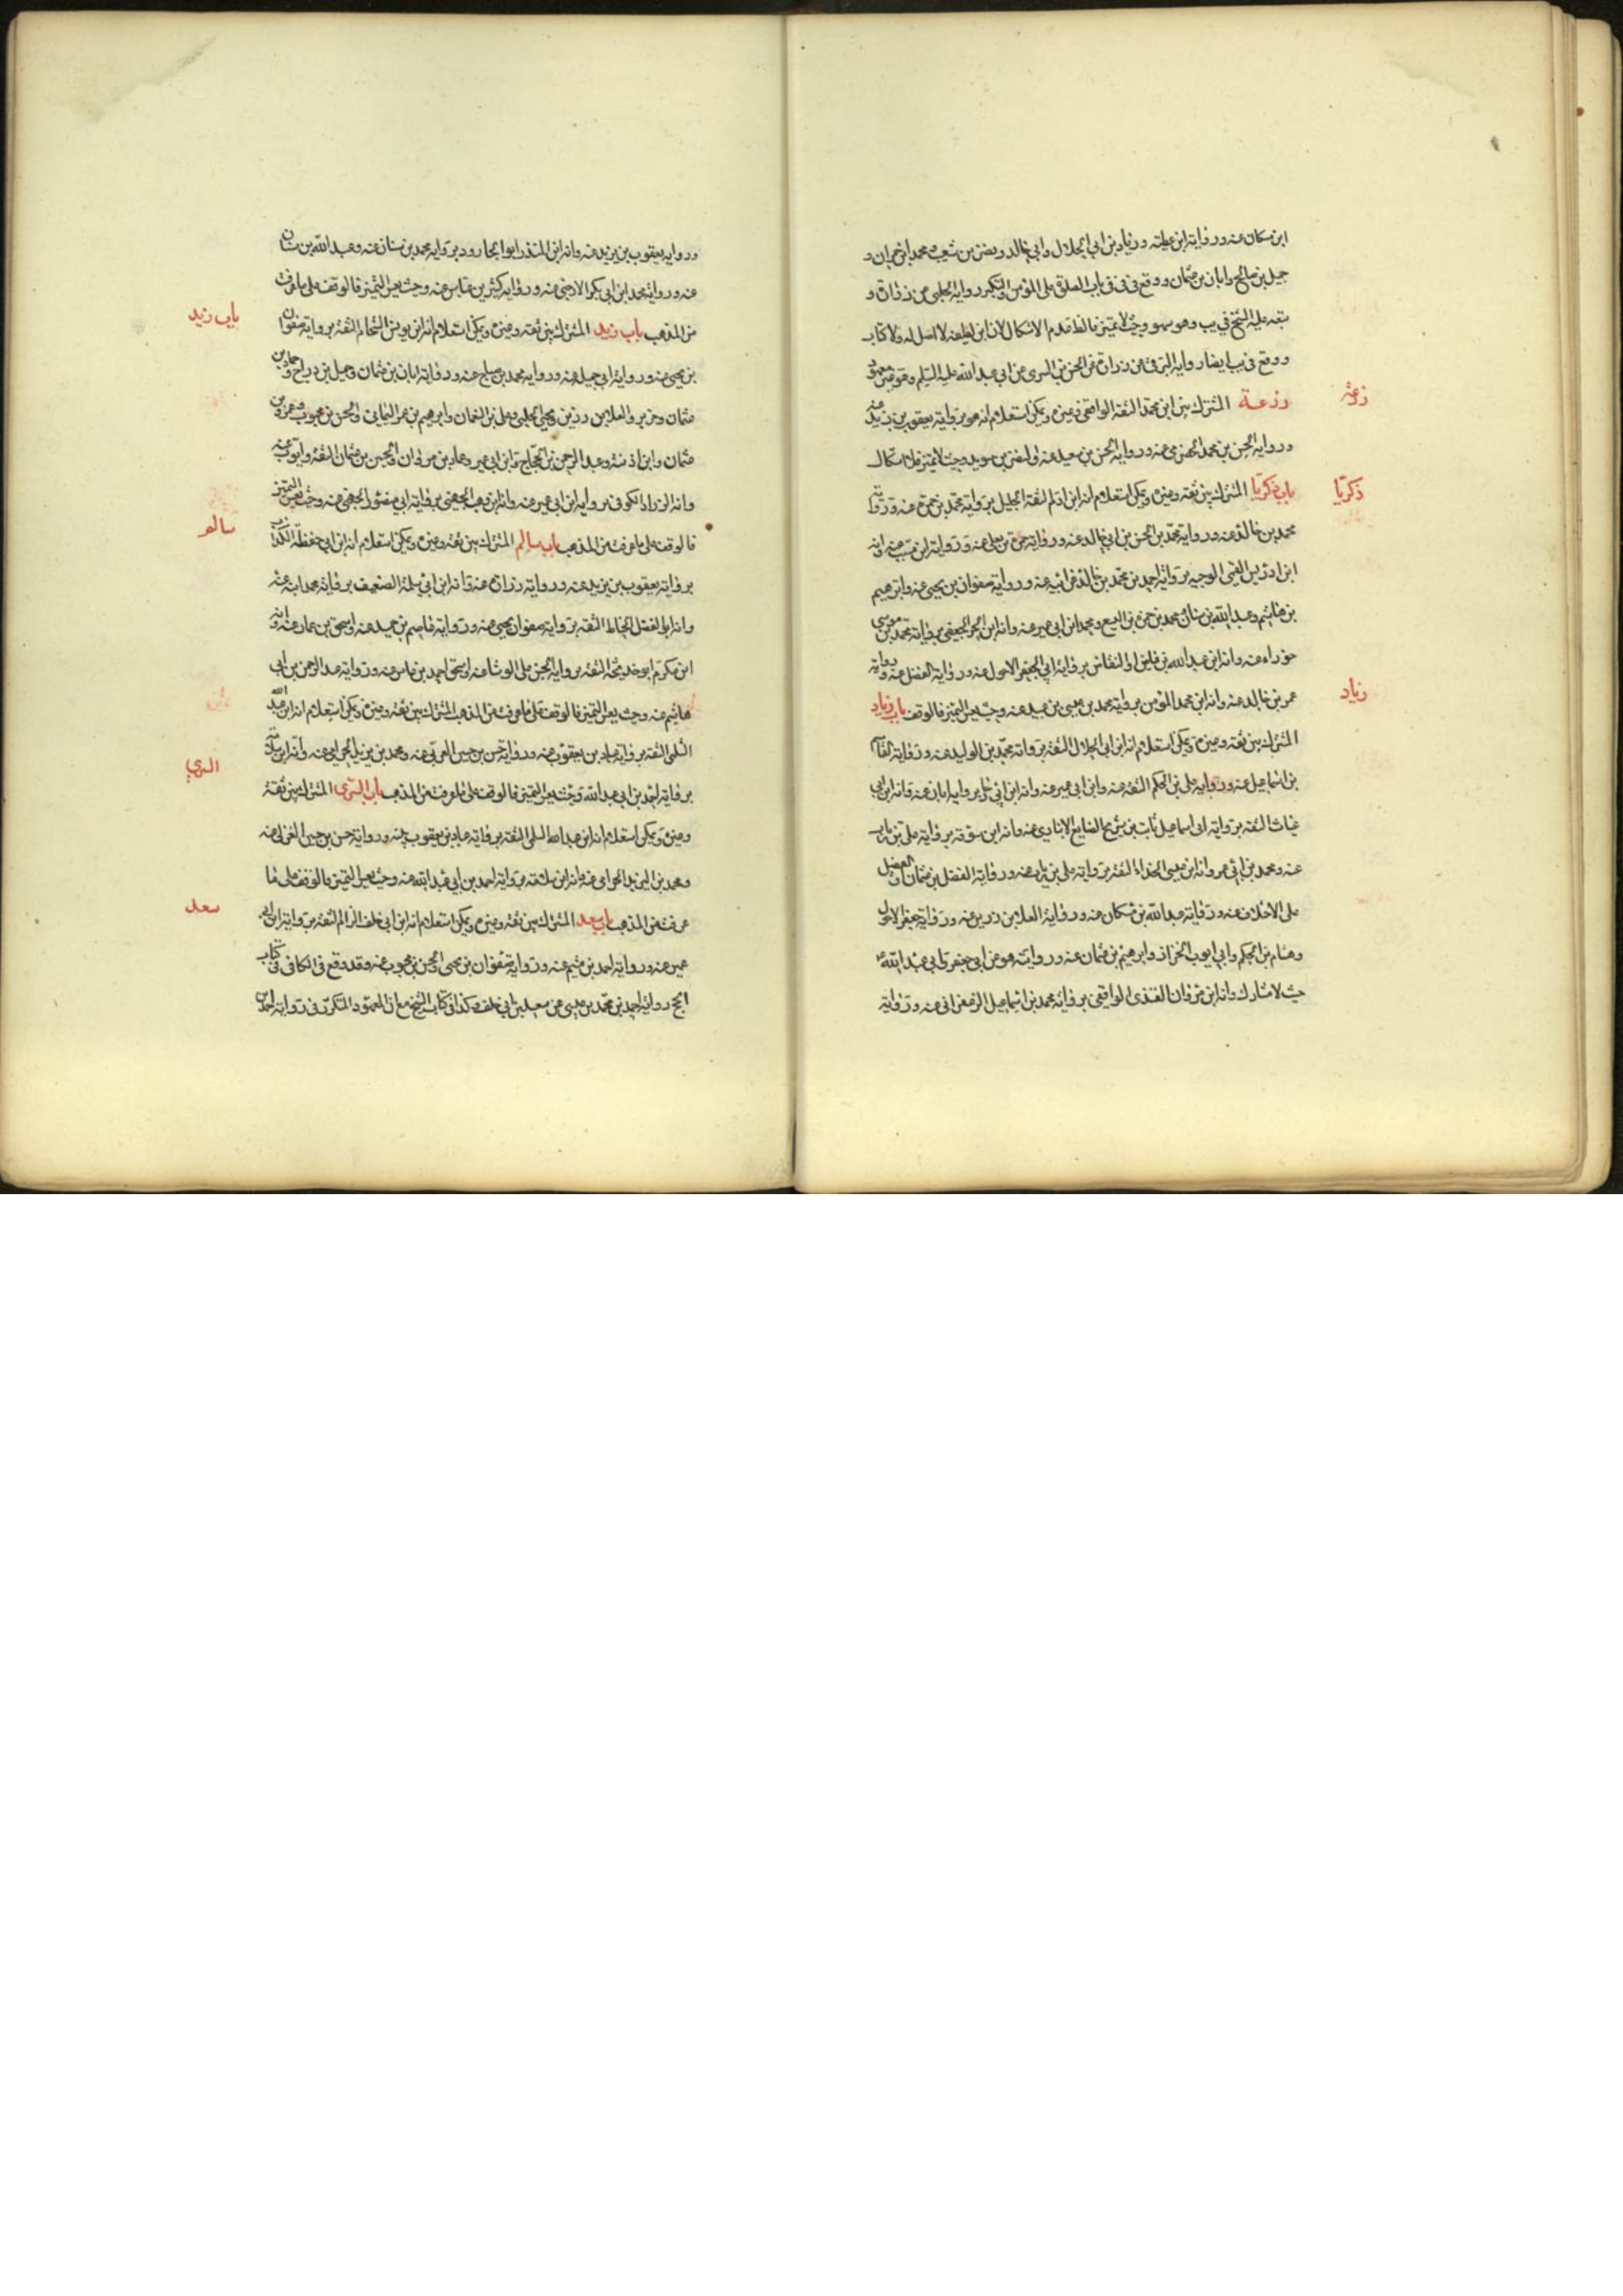 ابن مسكان عنه ورواية ابن عيينة وزياد بن ابي الحلال وابي خالد ونضر بن شعيب ومحمد بن حمران و
جميل بن صالح وابان بن عثمان ووقع في باب الصلوة على المؤمن والتكبير رواية الحلبي عن زرارة و
تبعه عليه الشيخ في يب وهو سهو وحيث لا تميز فالظ عدم الاشكال لان ابن لطيفة لا اصل له ولا كتاب
ووقع في يب ايضا رواية البرقي عن زرارة عن الحسن بن السري عن ابي عبد الله عليه السلم وهو
زرعة المشترك بين ابن محمد الثقة الواقفي وغيره ويمكن استعلام انه هو برواية يعقوب بن يزيد عنه
ورواية الحسن بن محمد الحضرمي عنه ورواية الحسن بن سعيد عنه والنضر بن سويد وحيث لا تميز فلا اشكال
باب زكريا المشترك بين ثقة وغيره ويمكن استعلام انه ابن ادم الثقة الجليل برواية محمد بن حمزة عنه ورواية
محمد بن خالد عنه ورواية محمد بن الحسن بن ابي خالد عنه ورواية حمزة بن يعلى عنه ورواية عنه وانه
ابن ادريس القمي الوجيه برواية احمد بن محمد بن خالد عن ابيه عنه ورواية صفوان بن يحيى عنه وابرهيم
بن هاشم وعبد الله بن سنان ومحمد بن حمزة بن اليسع ومحمد ابن ابي عمير عنه وانه ابن الحر الجعفي برواية محمد بن موسى
حوراء عنه وانه ابن عبد الله بن النقاض برواية ابي جعفر الاحول عنه ورواية الفضل عنه ورواية
عمر بن خالد عنه وانه ابن محمد المؤمن برواية محمد بن عيسى بن عبيد عنه وحيث يعسر التميز فالوقف باب زياد
المشترك بين ثقة وغيره ويمكن استعلام انه ابن ابي الحلال الثقة برواية محمد بن الوليد عنه ورواية القاسم
بن اسماعيل عنه ورواية علي بن الحكم الثقة عنه وابن ابي عمير عنه وانه ابن ابي برواية ابان عنه وانه ابن ابي
غياث الثقة برواية ابي اسماعيل ثابت بن شريح الصايغ الانباري عنه وانه ابن سوقه برواية علي بن رياب
عنه ومحمد بن ابي عمير وانه ابن عيسى الحذاء الثقة برواية علي بن رياب عنه ورواية الفضل بن عثمان
على الاختلاف عنه ورواية عبد الله بن مسكان عنه ورواية العلا بن رزين عنه ورواية جعفر الاحول
وهشام بن الحكم وابي ايوب الخزاز وابرهيم بن عثمان عنه وروايته هو عن ابي جعفر وابي عبد الله ع
حيث لا مشارك وانه ابن مروان القندي الواقفي برواية محمد بن اسماعيل الزعفراني عنه ورواية
زرعة
زكريا
زياد
ورواية يعقوب بن يزيد عنه وانه ابن المنذر ابو الجارود برواية محمد بن سنان عنه وعبد الله بن سنان
عنه ورواية محمد ابن ابي بكر الارحبي عنه ورواية كثير بن عياش عنه وحيث يعسر التميز فالوقف على ما عرفت
من المذهب باب زيد المشترك بين ثقة وغيره ويمكن استعلام انه ابن يونس الشحام الثقة برواية صفوان
بن يحيى عنه ورواية ابي جميلة عنه ورواية محمد بن صباح عنه ورواية ابان بن عثمان وجميل بن دراج وحماد بن
عثمان وحريز والعلا بن رزين ويحيى الحلبي وعلى بن النعمان وابرهيم بن عمر اليماني والحسن بن محبوب وعمرو بن
عثمان وابن اذينة وعبد الرحمن بن الحجاج وابن ابي عمير وعمار بن مروان والحسين بن عثمان الثقة وابوب عنه
وانه الزراد الكوفي برواية ابن ابي عمير عنه وانه ابن وهب الجهني برواية ابي منصور الجهني عنه وحيث يعسر التميز
فالوقف على ما عرفت من المذهب باب سالم المشترك بين ثقة وغيره ويمكن استعلام انه ابن ابي حفصة الكذاب
برواية يعقوب بن يزيد عنه ورواية زرارة عنه وانه ابن ابي سلمة الضعيف برواية محمد ابنه عنه
وانه ابو الفضل الحناط الثقة برواية صفوان يحيى عنه ورواية عاصم بن حميد عنه واسحق بن عمار عنه وانه
ابن مكرم ابو خديجة الثقة برواية الحسن على الوشا عنه واسحق احمد بن عائذ عنه ورواية عبد الرحمن بن ابي
هاشم عنه وحيث يعسر التميز فالوقف على ما عرفت من المذهب المشترك بين ثقة وغيره ويمكن استعلام انه ابن عبد الله
السلمي الثقة برواية عباد بن يعقوب عنه ورواية حسن بن حسين العرني عنه ومحمد بن يزيد الحرامي عنه وانه ابن سلامة
برواية احمد بن ابي عبد الله وحيث يعسر التميز فالوقف على ما عرفت من المذهب باب السري المشترك بين ثقة
وغيره ويمكن استعلام انه ابن عبد الله السلمي الثقة برواية عباد بن يعقوب عنه ورواية حسن بن حسين العرني عنه
ومحمد بن يزيد الحرامي عنه وانه ابن سلامة برواية احمد بن ابي عبد الله عنه وحيث يعسر التميز فالوقف على ما
عرفت من المذهب باب سعد المشترك بين ثقة وغيره ويمكن استعلام انه ابن ابي خلف الزام الثقة برواية ابن ابي
عمير عنه ورواية احمد بن ميثم عنه ورواية صفوان بن يحيى والحسن بن محبوب عنه وقد وقع في الكافي في كتاب
الحج رواية احمد بن محمد بن عيسى عن سعد بن ابي خلف وكذا في كتاب الشيخ مع ان المعهود المتكرر في رواية احمد بن
باب زيد
سالم
السري
سعد